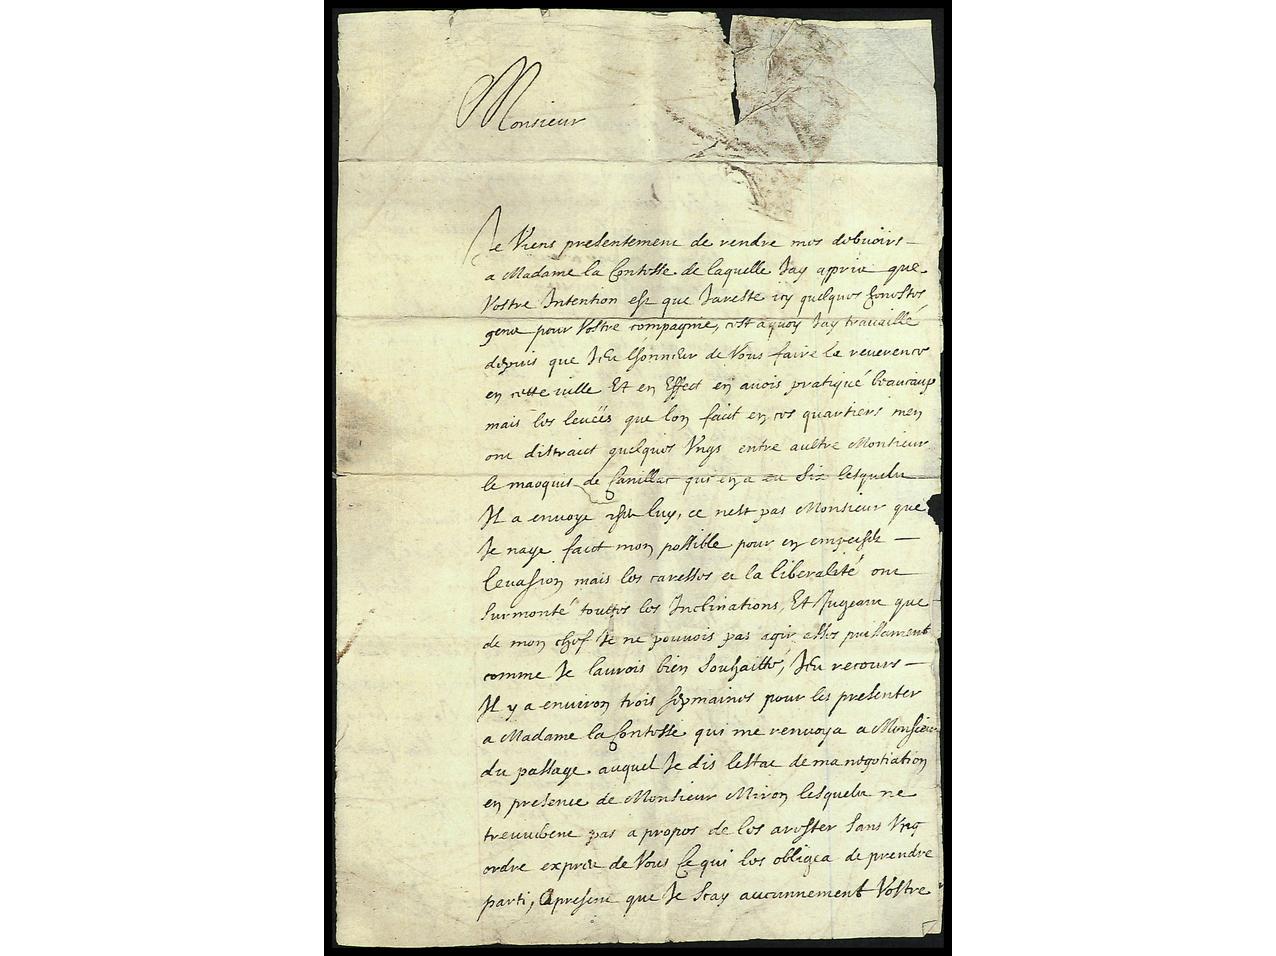 Monsieur
Je Viens presentement de rendre mes debuoirs
a Madame la Contesse de laquelle Jay aprix que
Vostre Intention est que Jareste icy quelques honestes
gens pour Vostre compagnie, cest a quoy Jay travaillé
depuis que Jeu lhonneur de Vous faire la reuerence
en cette uille Et en Effect en auois pratiqué beaucoup
mais les leueës que lon faict en ces quartiers men
ont distraict quelques Vngs entre aultre Monsieur
le marquis de Canillac qui en a eu Six lesquels
Il a enuoye chez luy, ce nest pas Monsieur que
Je naye faict mon possible pour en empescher
leuasion mais les caresses et la liberalité ont
surmonté touttes les Inclinations, Et Jugeant que
de mon chef Je ne pouuois pas agir asses puissament
comme Je laurois bien souhaitté, Jeu recours
Il y a enuiron trois sepmaines pour les presenter
a Madame la Contesse qui me renuoya a Monsieur
du passage auquel Je dis lestat de ma negotiation
en presence de Monsieur Miron lesquels ne
treuuerent pas a propos de les arester sans Vng
ordre exprix de Vous Ce qui les obligea de prendre
parti, Apresent que Je scay aucunnement Vostre